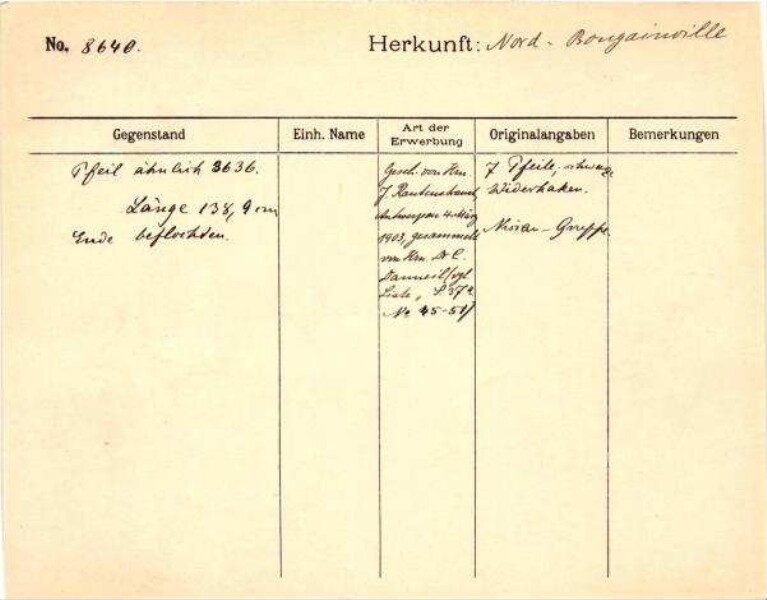 No. 8640.
Herkunft: Nord - Bougainville
Gegenstand
Einh. Name
Art der
Erwerbung
Originalangaben
Bemerkungen
Pfeil ähnlich 3636.
Länge 138,9 cm
Ende beflochten.
Gesch. von Hrn.
J. Rautenstrauch,
Antwerpen 4. März
1903, gesammelt
von Hrn. Dr. C.
Danneil (vgl.
Liste, S. 37a
No 45-51)
7 Pfeile, schwarze
Widerhaken.
Nissan - Gruppe.